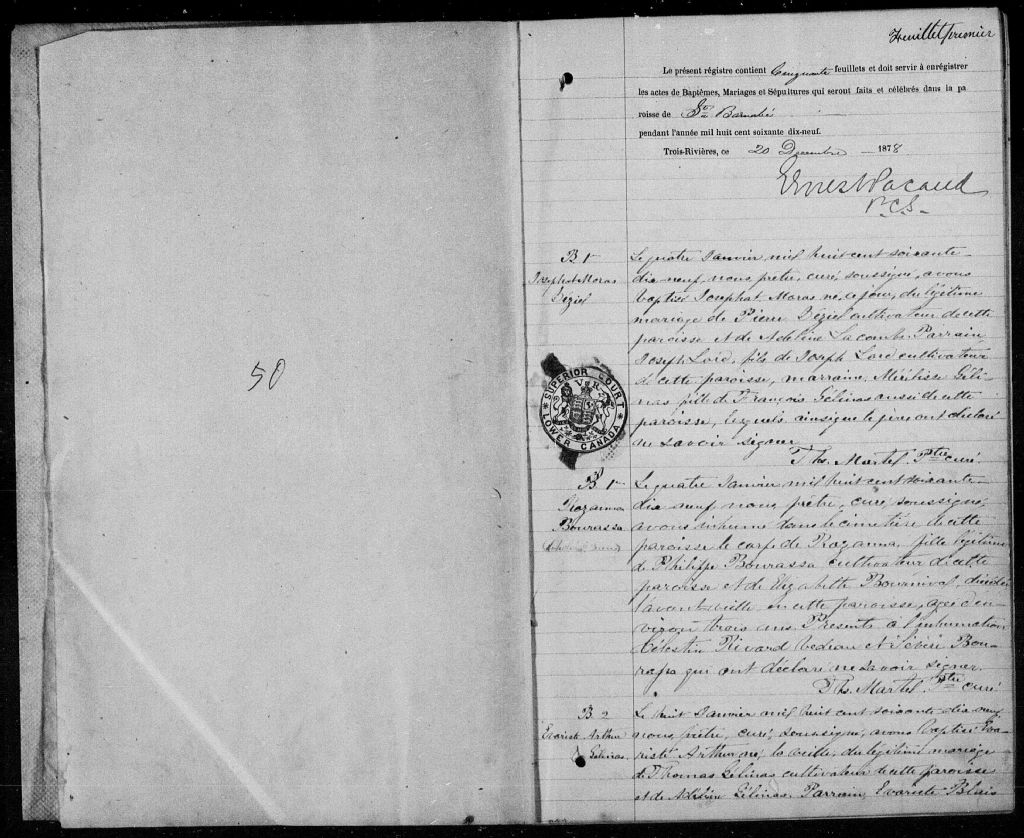 Feuillet premier
Le présent régistre contient Cinquante feuillets et doit servir à enrégistrer
les actes de Baptêmes, Mariages et Sépultures qui seront faits et célébrés dans la pa
roisse de St Barnabé
pendant l'année mil huit cent soixante dix-neuf.
Trois-Rivières, ce 20 Decembre 1878
Ernest Pacaud
P.C.S.
50
B 1r
Josephat Moras
Déziel
Le quatre Janvier mil huit cent soixante-
dix-neuf, nous, prêtre, curé, soussigné, avons
baptisé Josephat Moras né, ce jour, du légitime
mariage de Pierre Déziel cultivateur de cette
paroisse et de Adeline Lacombe. Parrain
Joseph Lord, fils de Joseph Lord cultivateur
de cette paroisse, marraine, Mérilisse Géli-
nas fille de François Gélinas aussi de cette
paroisse, lesquels, ainsi que le père ont déclaré
ne savoir signer.
Ths. Martel Ptre curé
SUPERIOR COURT
V R
LOWER CANADA
1r
Rozanna
Bourassa
Le quatre Janvier mil huit cent soixante-
dix neuf nous, prêtre, curé, soussigné,
avons inhumé dans le cimetière de cette
paroisse le corps de Rozanna, fille légitime
de Philippe Bourassa cultivateur de cette
paroisse et de Elizabeth Bournival, décédée
l'avant-veille en cette paroisse, agée d'en-
viron trois ans. Presents à l'inhumation
Célestin Rivard Bedeau et Sévère Bou-
rassa qui ont déclaré ne savoir signer.
Ths. Martel Ptre curé
B 2
Evariste Arthur
Gélinas
Le huit Janvier mil huit cent soixante-dix neuf
nous, prêtre, curé, soussigné, avons baptisé Eva-
riste Arthur né, la veille, du légitime mariage
de Thomas Gélinas cultivateur de cette paroisse
et de Adeline Gélinas. Parrain, Evariste Blais